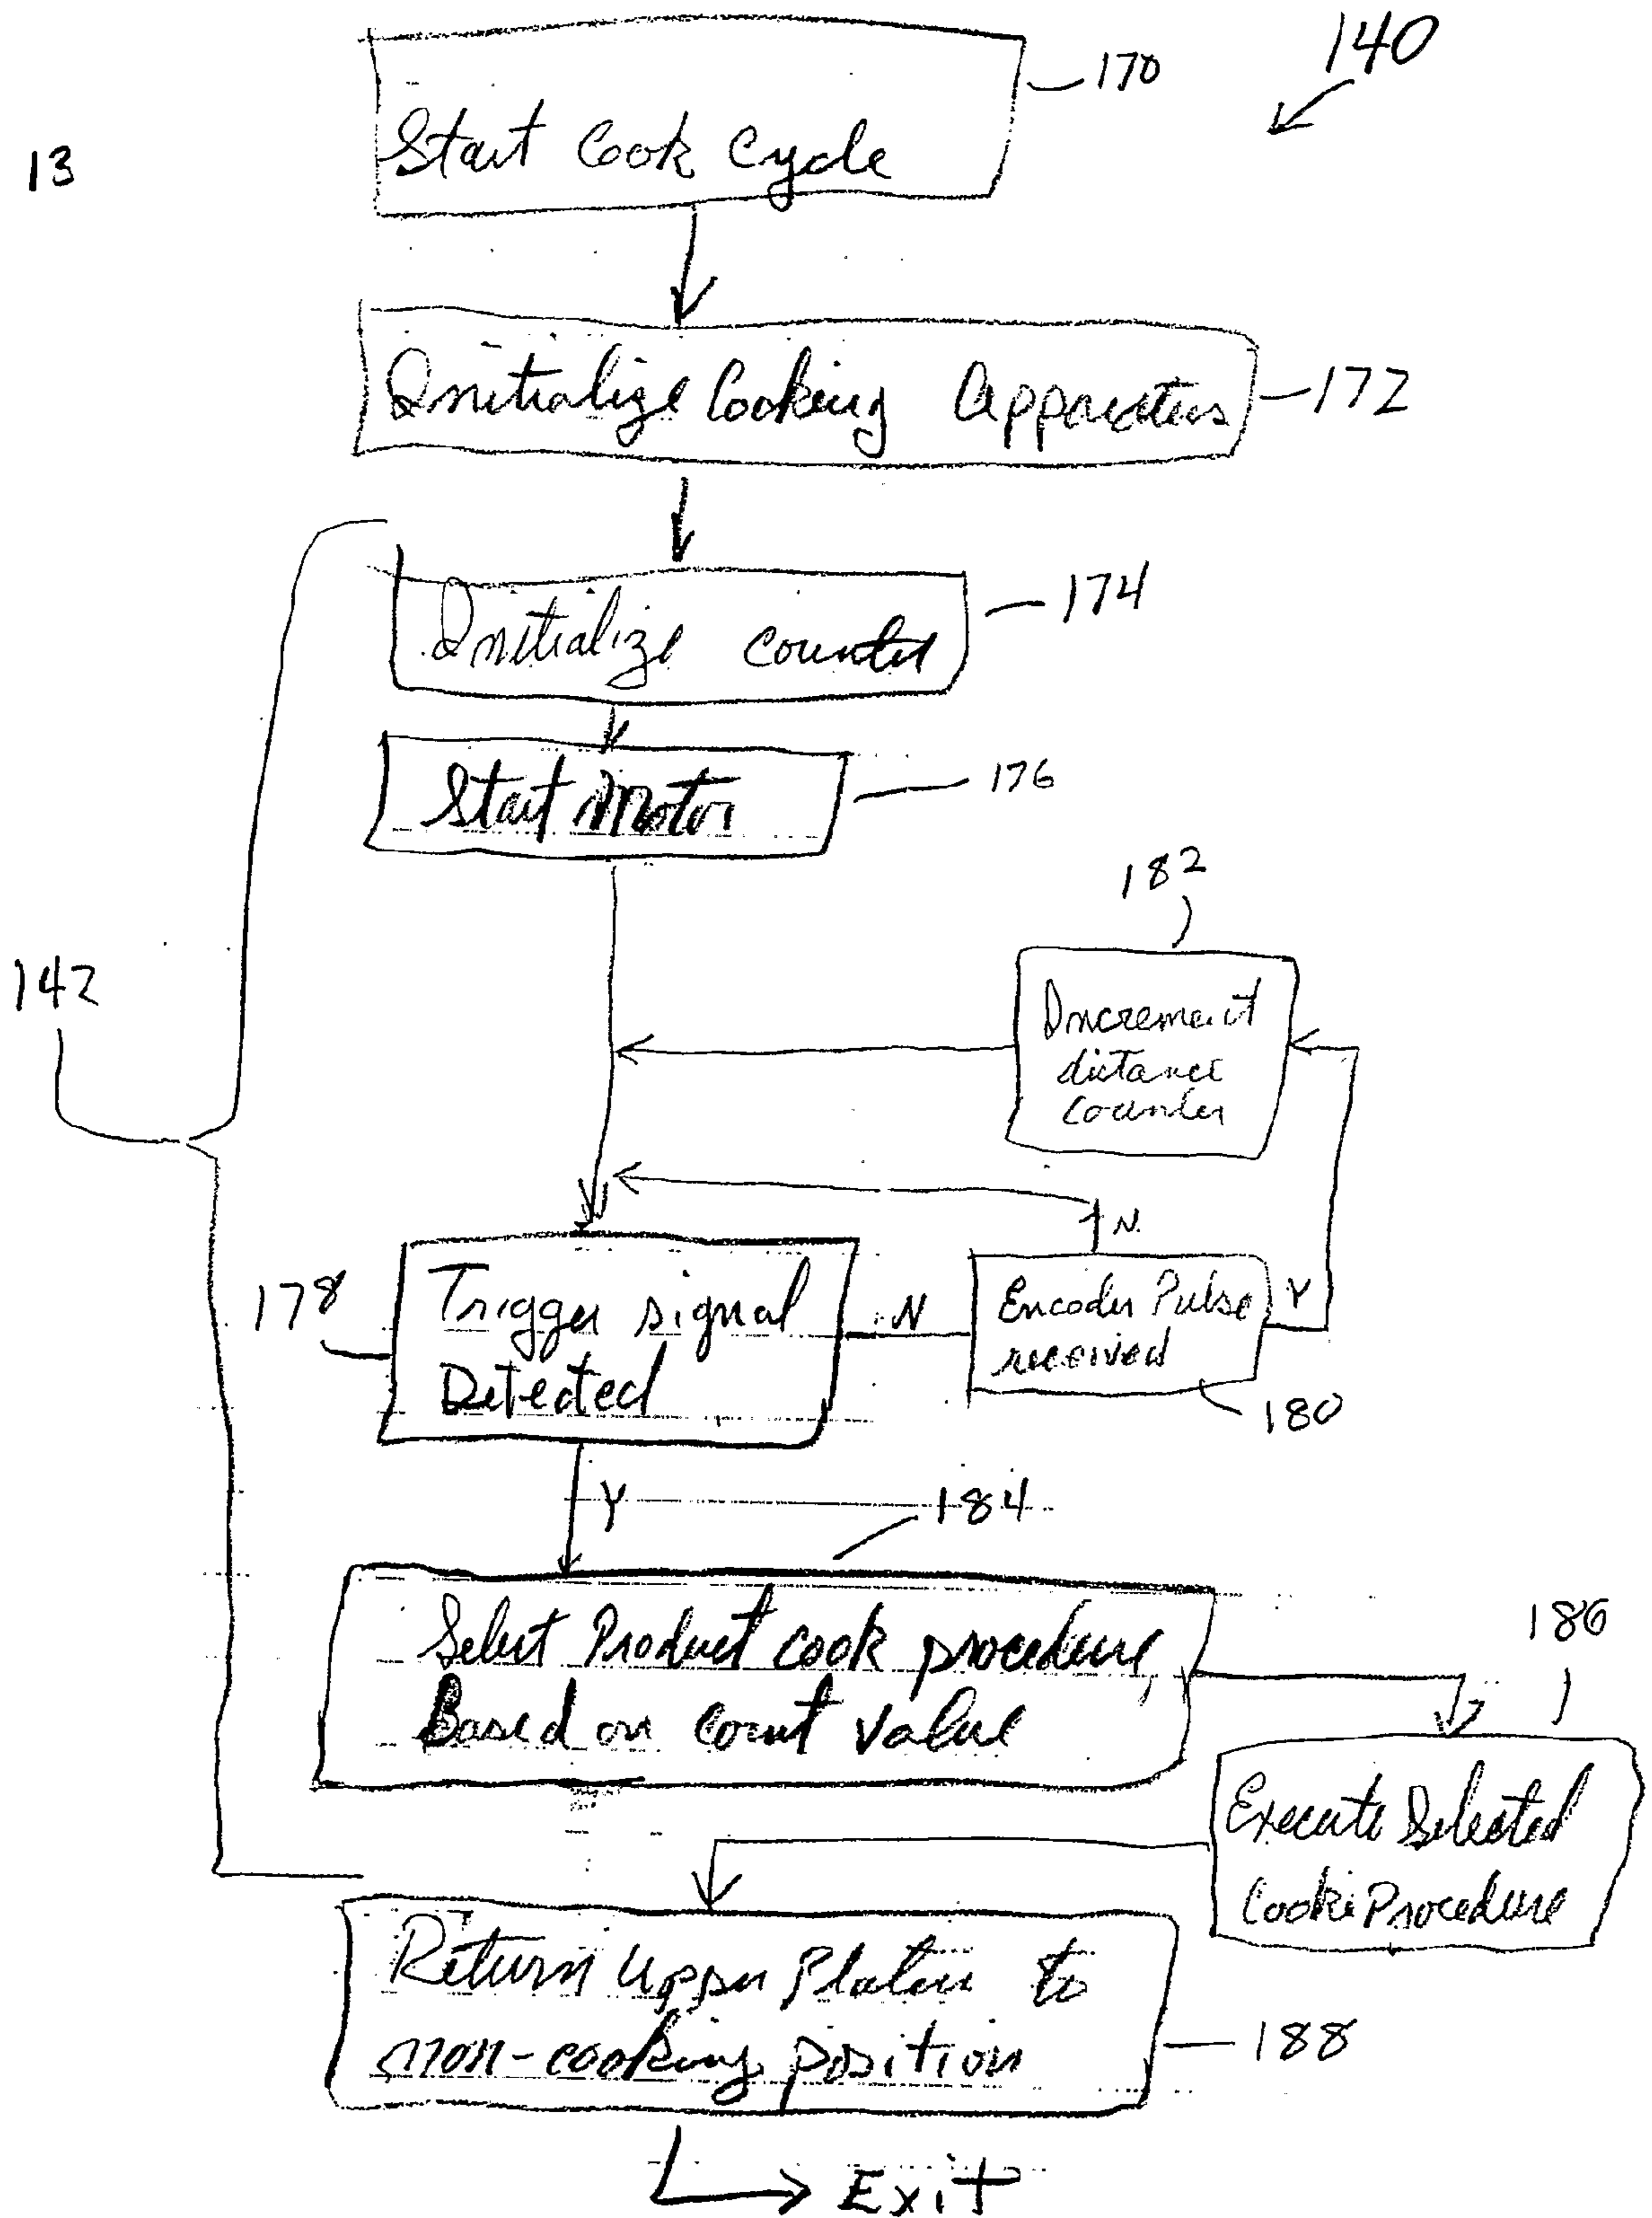 140
170
13
Start Cook Cycle
Initialize Cooking Apparatus
172
174
Initialize counter
176
Start Motor
182
142
Increment
distance
counter
N
178
Trigger signal
Detected
N
Encoder Pulse
received
Y
180
Y
184
Select Product cook procedure,
Based on count value
186
Execute Selected
Cook Procedure
Return Upper Platen to
non-cooking position
188
Exit